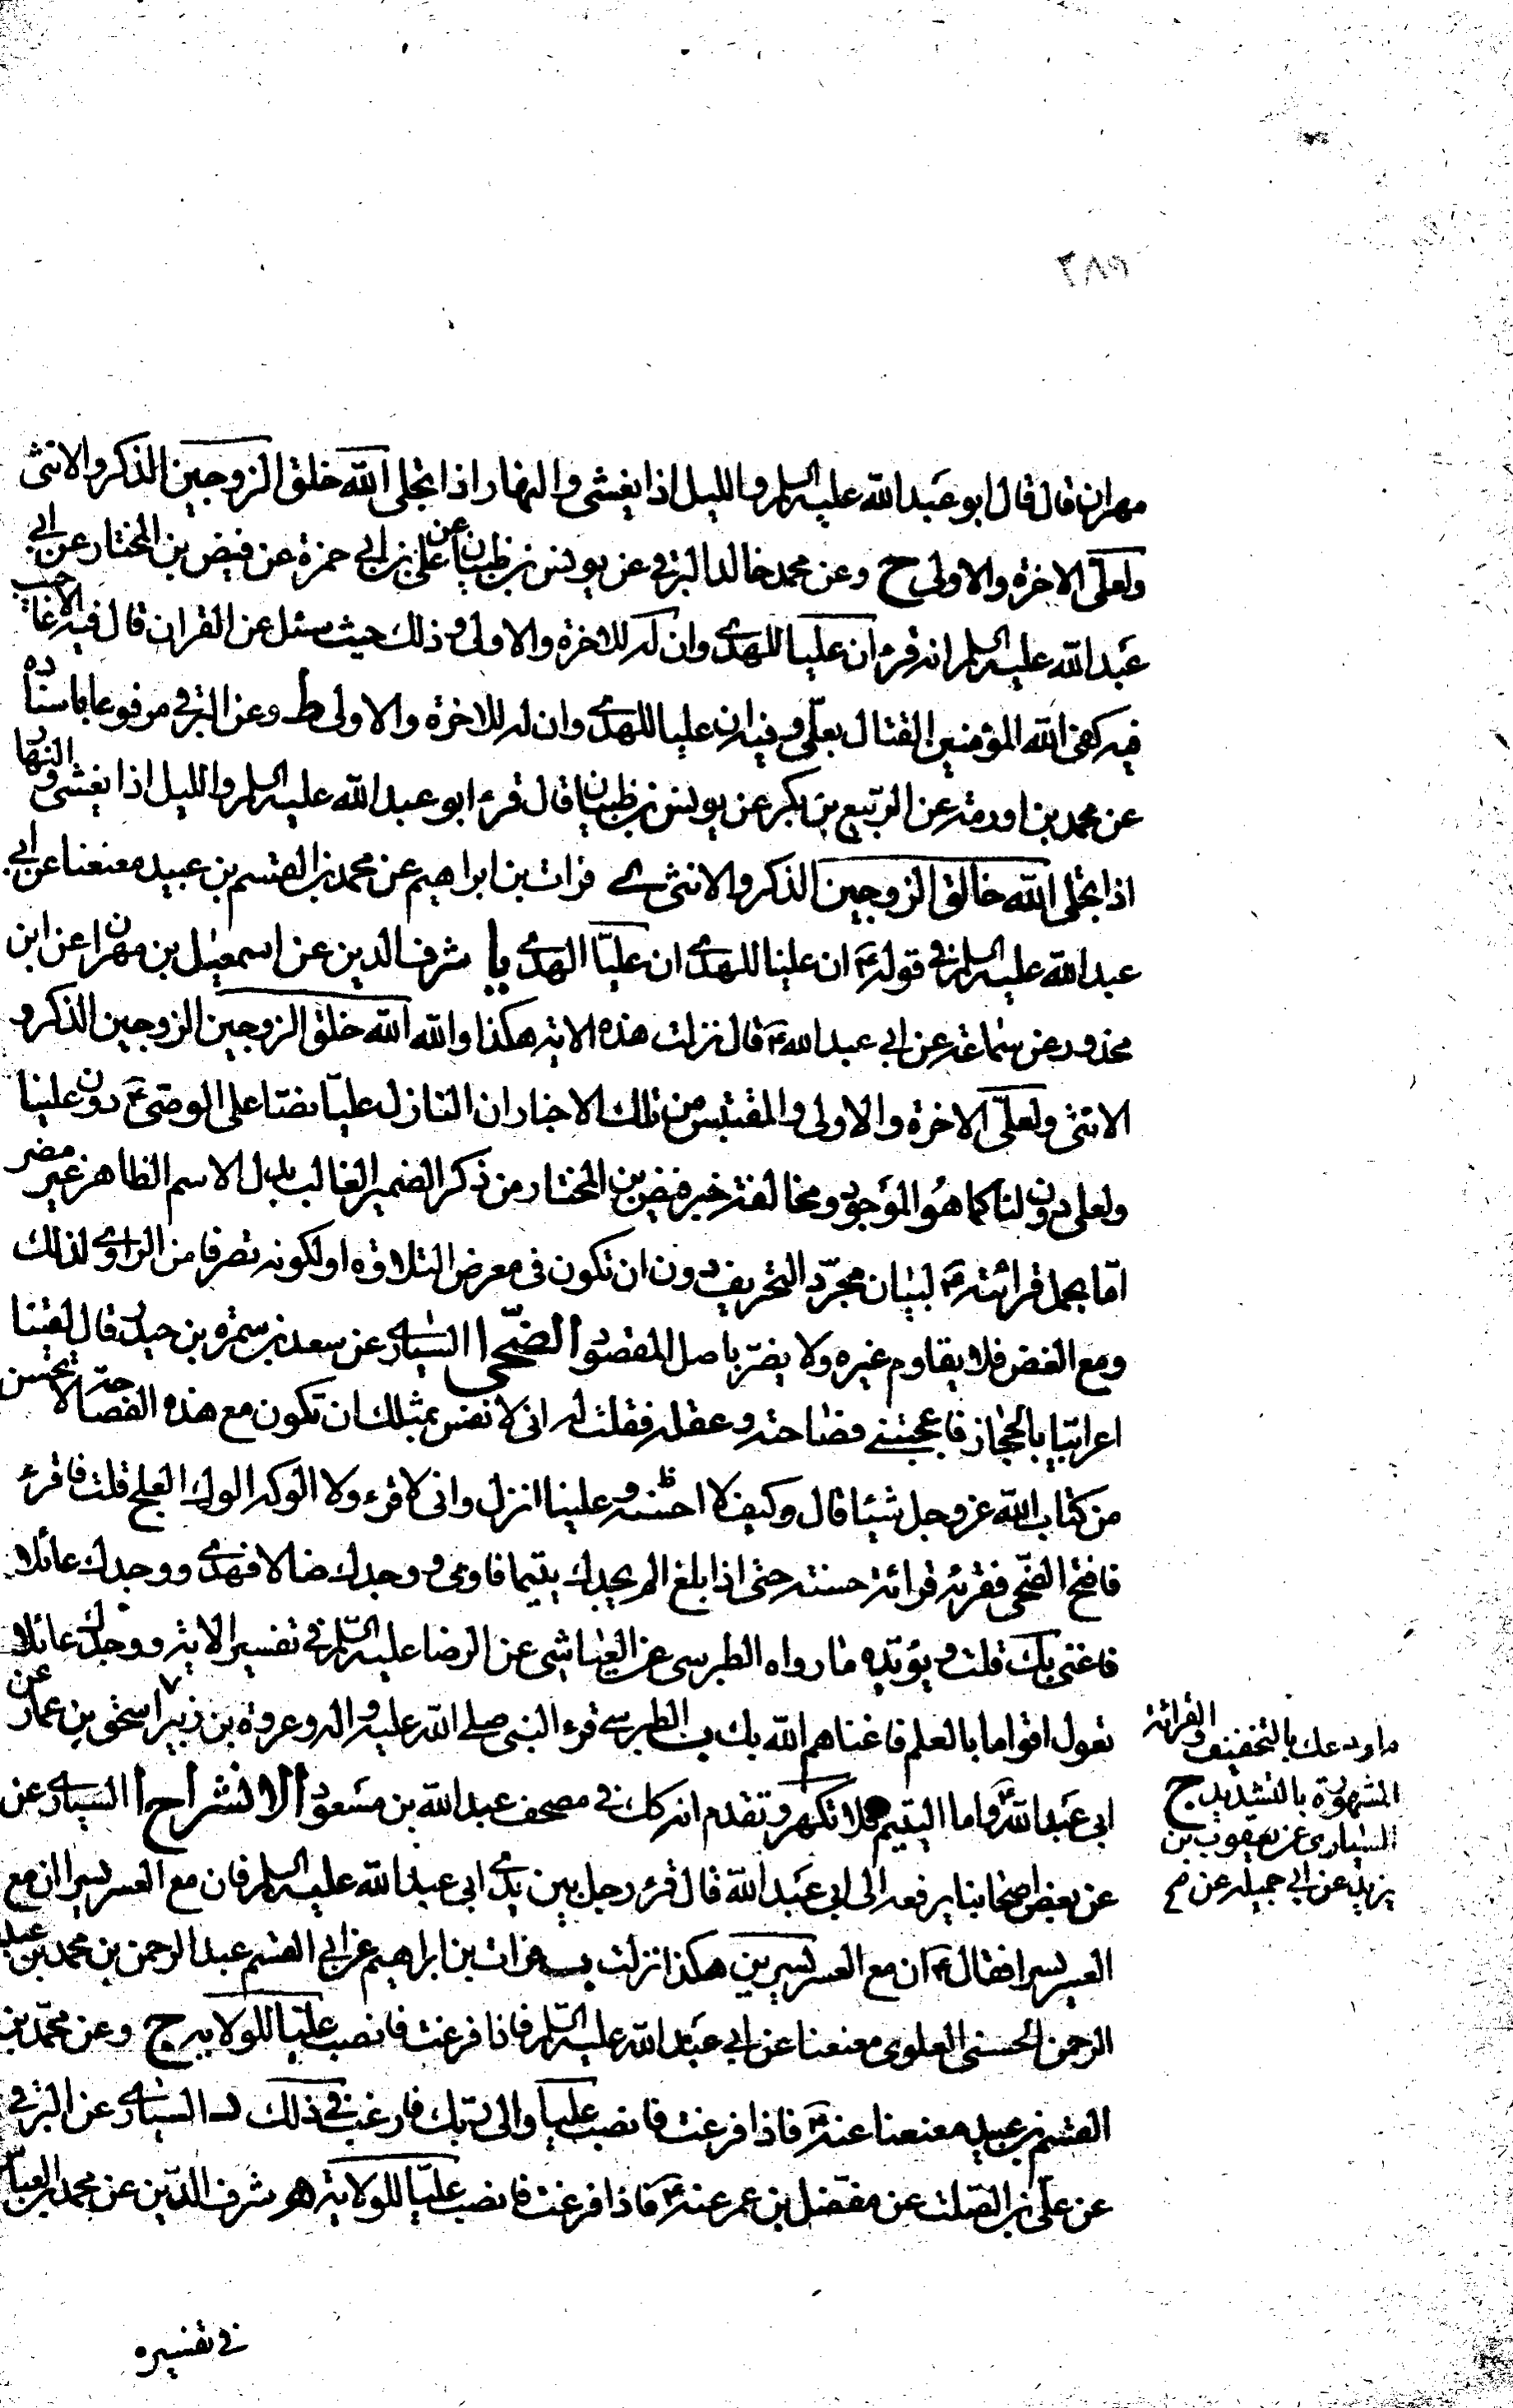 ٣٨٩
مهران قال قال ابو عبد الله عليه السلم والليل اذا يغشى والنهار اذا تجلى الله خلق الزوجين الذكر والانثى
ولعلى الاخرة والاولى ح وعن محمد خالد البرقى عن يونس بن ظبيان عن على بن ابى حمزة عن فيض بن المختار عن ابى
عبد الله عليه السلم انه قرء ان عليا للهدى وان له للاخرة والاولى و ذلك حيث سئل عن القران قال فيه الاعاجيب
فيه كفى الله المؤمنين القتال بعلى و فيه ان عليا للهدى وان له للاخرة والاولى ط وعن البرقى مرفوعا باسناده
عن محمد بن اورمة عن الربيع بن بكر عن يونس بن ظبيان قال قرء ابو عبد الله عليه السلم والليل اذا يغشى والنهار
اذا تجلى الله خالق الزوجين الذكر والانثى ى فرات بن ابراهيم عن محمد بن القسم بن عبيد معنعنا عن ابى
عبد الله عليه السلم فى قوله تع ان علينا للهدى ان عليّا الهدى يا شرف الدين عن اسمعيل بن مهران عن ابن
محذور عن سماعة عن ابى عبد الله ع قال نزلت هذه الاية هكذا والله الله خلق الزوجين الزوجين الذكر و
الانثى ولعلى الاخرة والاولى والمقتبس من تلك الاخبار ان النازل عليّا نصّا على الوصى ع دون علينا
ولعلى دون لنا كما هو الموجود ومخالفة خبر فيض بن المختار من ذكر الضمير الغالب بدل الاسم الظاهر غير مضر
امّا بحمل قرائته ع لبيان مجرّد التحريف دون ان تكون فى معرض التلاوة او لكونه تصرفا من الراوى لذلك
ومع الغض فلا يقاوم غيره ولا يضرّ باصل المقصود الضّحى ا السيارى عن سعد بن سمرة بن قال لقينا
اعرابيّا بالحجاز فاعجبتنى فصاحته وعقله فقلت له انى لا نفس بمثلك ان تكون مع هذه الفصاحة لا تحسن
من كتاب الله عز وجل شيئا قال وكيف لا احسنه و علينا انزل وانى لاقرء ولا الوكه الوك العلج قلت فاقرء
فافتح الضّحى فقرئه قرائة حسنة حتى اذا بلغ الم يجدك يتيما فاوى و وجدك ضالا فهدى ووجدك عائلا
فاغنى بك قلت و يؤيّده ما رواه الطبرسى عن العياشى عن الرضا عليه السّلم فى تفسير الاية ووجدك عائلا
تعول اقواما بالعلم فاغناهم الله بك ب الطبرسى قرء النبى صلى الله عليه واله وعروة بن زبير اسحق بن عمار عن
ما ودعك بالتخفيف والقرائة
المشهورة بالتشديد ج
السيارى عن يعقوب بن
يزيد عن ابى جميله عن
ابى عبد الله ع واما اليتيم فلا تكهر وتقدم انه كك فى مصحف عبد الله بن مسعود الانشراح ا السيارى عن
عن بعض اصحابنا يرفعه الى ابى عبد الله قال قرء رجل بين يدى ابى عبد الله عليه السلم فان مع العسر يسرا ان مع
العسر يسرا فقال ع ان مع العسر يسرين هكذا نزلت ب فرات بن ابراهيم عن ابى القسم عبد الرحمن بن محمد بن عبد
الرحمن الحسنى العلوى معنعنا عن ابى عبد الله عليه السّلم فاذا فرغت فانصب عليّا للولاية ج وعن محمّد بن
القسم بن عبيد معنعنا عنه ع فاذا فرغت فانصب عليا والى ربك فارغب فى ذلك د السيارى عن البرقى
عن على بن الصلت عن مفضل بن عمر عنه ع فاذا فرغت فانصب عليّا للولاية ه شرف الدّين عن محمد بن العباس
فى تفسيره